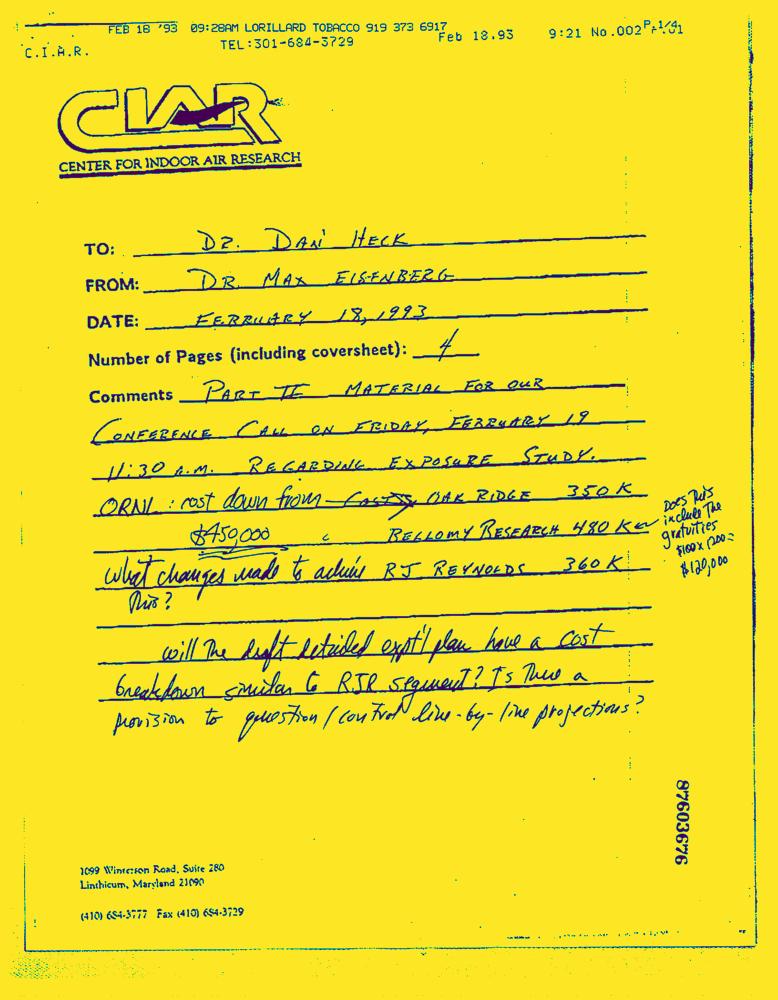 FEB 18 '93 09:28AM LORILLARD TOBACCO 919 373 6917 P.1/4
C.I.A.R. TEL:301-684-3729 Feb 18,93 9:21 No.002 P.01
CIAR
CENTER FOR INDOOR AIR RESEARCH
TO: DR. DAN HECK
FROM: DR. MAX EISENBERG
DATE: FEBRUARY 18, 1993
Number of Pages (including coversheet): 4
Comments PART II MATERIAL FOR OUR
CONFERENCE CALL ON FRIDAY, FEBRUARY 19
11:30 A.M. REGARDING EXPOSURE STUDY.
ORNL: cost down from COSTS OAK RIDGE 350 K
$459,000 BELLOMY RESEARCH 480 K
Does this
include the
gratuities
$100 x 1200 =
$120,000
What changes made to achieve RJ REYNOLDS 360 K
this?
will the draft detailed expt'l plan have a cost
breakdown similar to RJR segment? Is there a
provision to question/control line-by-line projections?
87603676
1099 Winterson Road, Suite 280
Linthicum, Maryland 21090
(410) 684-3777 Fax (410) 684-3729